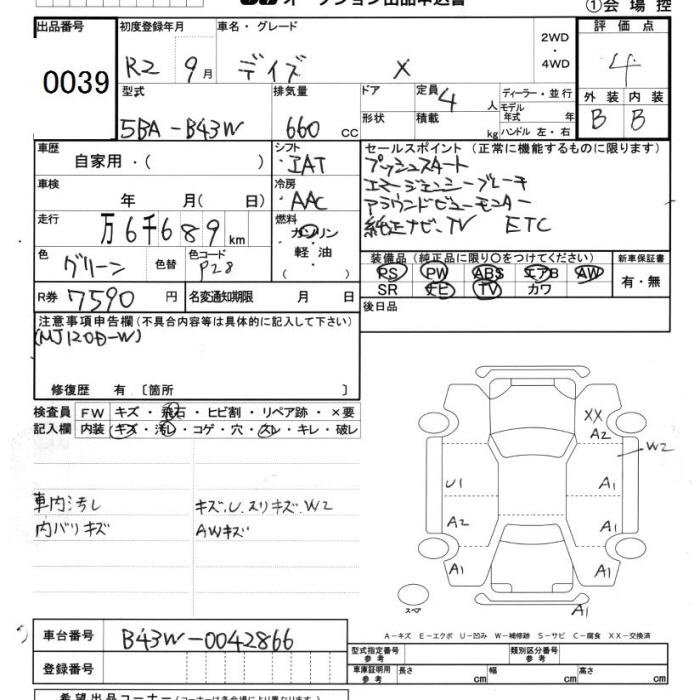 オークション出品申込書 ①会場控
出品番号 0039
初度登録年月 R2 9月
車名・グレード デイズ X
2WD・4WD
評価点 4
外装 B 内装 B
型式 5BA-B43W
排気量 660 cc
ドア 形状
定員 4人
積載 kg
ディーラー・並行
モデル年式 年
ハンドル 左・右
車歴 自家用・( )
シフト IAT
セールスポイント (正常に機能するものに限ります)
プッシュスタート
エマージェンシーブレーキ
アラウンドビューモニター
純正ナビ、TV ETC
車検 年 月( 日)
冷房 AAC
走行 万6千689km
燃料 ガソリン 軽油
色 グリーン 色替 色コード P28
装備品 (純正品に限り○をつけてください) 新車保証書
PS PW ABS エアB AW 有・無
SR ナビ TV カワ
R券 7590円 名変通知期限 月 日
後日品
注意事項申告欄 (不具合内容等は具体的に記入して下さい)
(MJ120D-W)
修復歴 有 〔箇所 〕
検査員 FW キズ・飛石・ヒビ割・リペア跡・×要
記入欄 内装 キズ・汚レ・コゲ・穴・スレ・キレ・破レ
車内汚し キズ.U.スリキズ.W2
内バリキズ AWキズ
XX
A2
W2
U1 A1
A2 A1
A1 A1
スペア
A1
A-キズ E-エクボ U-凹み W-補修跡 S-サビ C-腐食 XX-交換済
車台番号 B43W-0042866
型式指定番号 参考 類別区分番号 参考
登録番号
車庫証明用 参考 長さ cm 幅 cm 高さ cm
希望出品コーナー